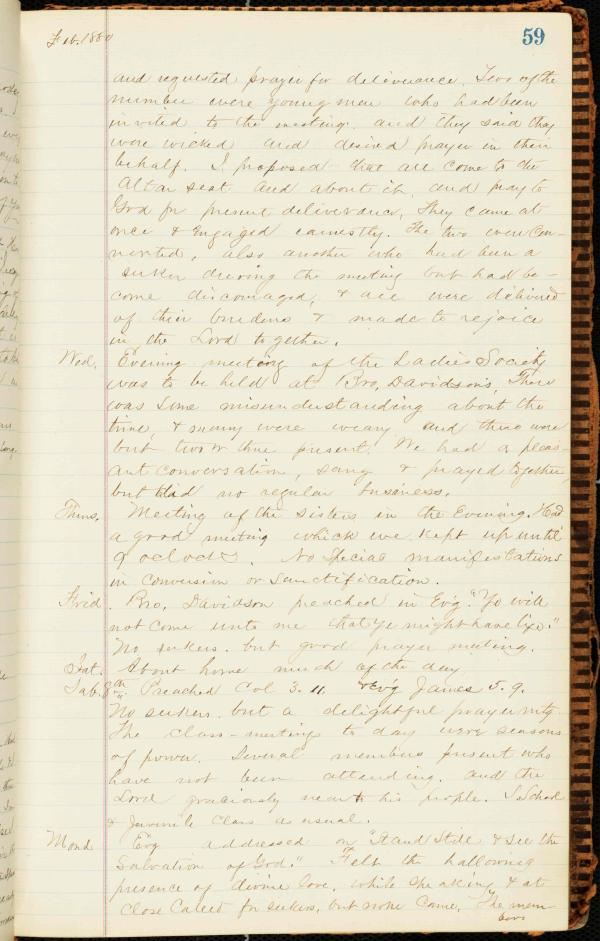 Feb. 1880
59
and requested prayer for deliverance. Two of the
number were young men who had been
invited to the meeting. and they said they
were wicked and desired prayer in their
behalf. I proposed that all come to the
Altar seat and about it, and pray to
God for present deliverance, They came at
once & Engaged earnestly. The two were Con-
verted, also another who had been a
seeker during the meeting but had be-
come discouraged, & all were delivered
of their burdens & made to rejoice
in the Lord together.
Wed. Evening meeting of the Ladies Society
was to be held at Bro, Davidson's, There
was some misunderstanding about the
time, & many were weary and there were
but two or three present. We had a pleas-
ant Conversation, sang & prayed together,
but had no regular business.
Thurs. Meeting of the Sisters in the Evening. Had
a good meeting which we kept up until
9 oclock. No Special manifestations
in Conversion or Sanctification.
Frid. Bro, Davidson preached in Ev'g. "Ye will
not come unto me that ye might have life."
No seekers. but good prayer meeting.
Sat. About home much of the day
Sab. 8th. Preached Col 3. 11. & Ev'g James 5. 9.
No seekers. but a delightful prayer mtg.
The class-meetings to day were seasons
of power. Several members present who
have not been attending. and the
Lord graciously near to his people. S School
& Juvenile Class as usual.
Mond Evg addressed on "Stand Still & See the
Salvation of God." Felt the hallowing
presence of divine love, while speaking & at
close Called for seekers, but none Came. The mem-
bers